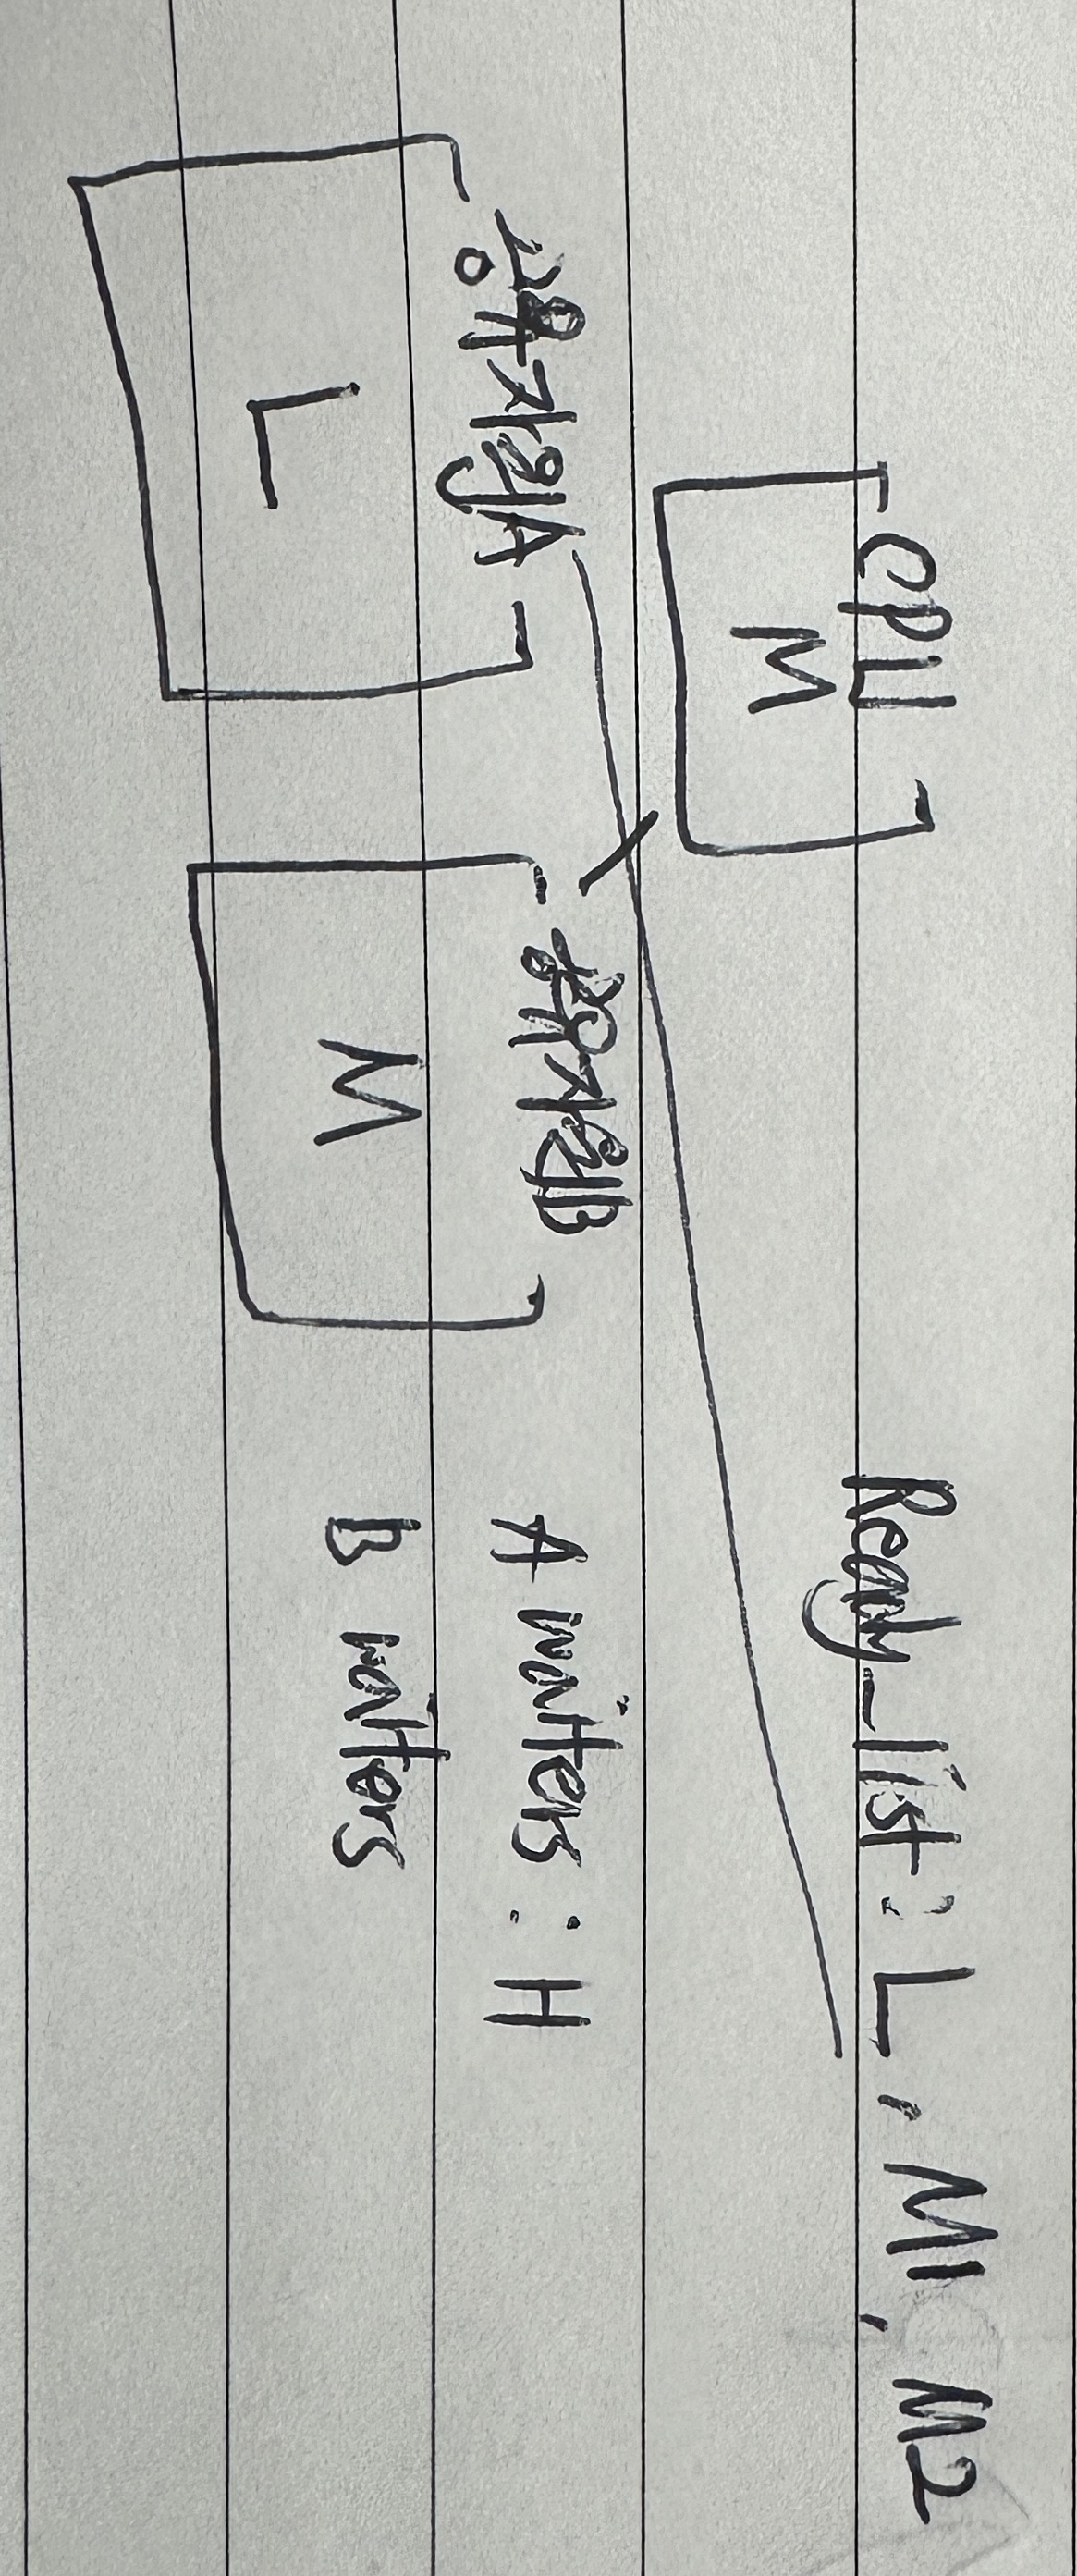 CPU
M
Ready_list : L, M1, M2
공유자원A
L
공유자원B
M
A waiters : H
B waiters